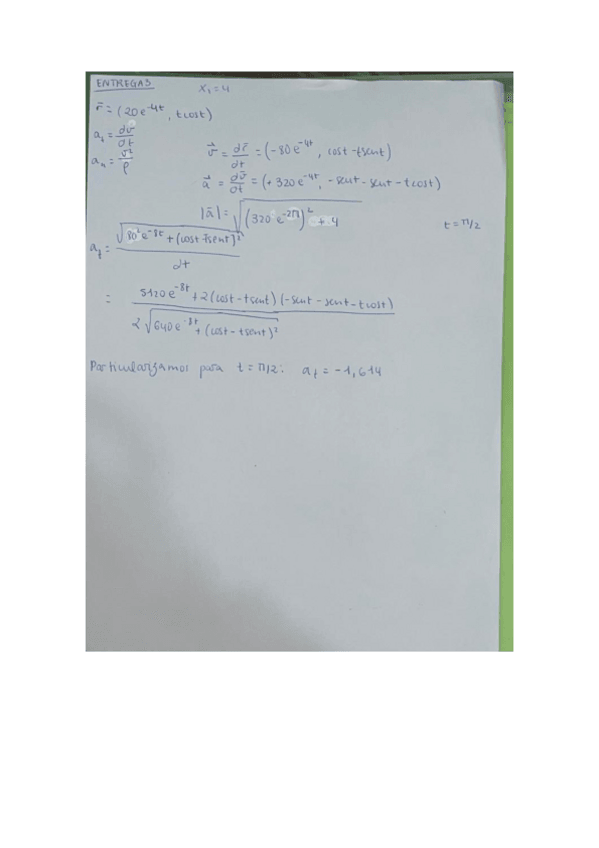 ENTREGAS X₁ = 4
r̄ = (20e^-4t, t cost)
a_t = dv/dt
a_n = v²/ρ
v⃗ = dr̄/dt = (-80e^-4t, cost - tsent)
a⃗ = dv̄/dt = (+320e^-4t, -sent - sent - tcost)
|ā| = √((320 e^-2π)² + 4) t = π/2
a_t = √(80²e^-8t + (cost - tsent)²) / dt
= (5120e^-8t + 2(cost - tsent)(-sent - sent - tcost)) / (2√(640e^-8t + (cost - tsent)²))
Particularizamos para t = π/2: a_t = -1,614